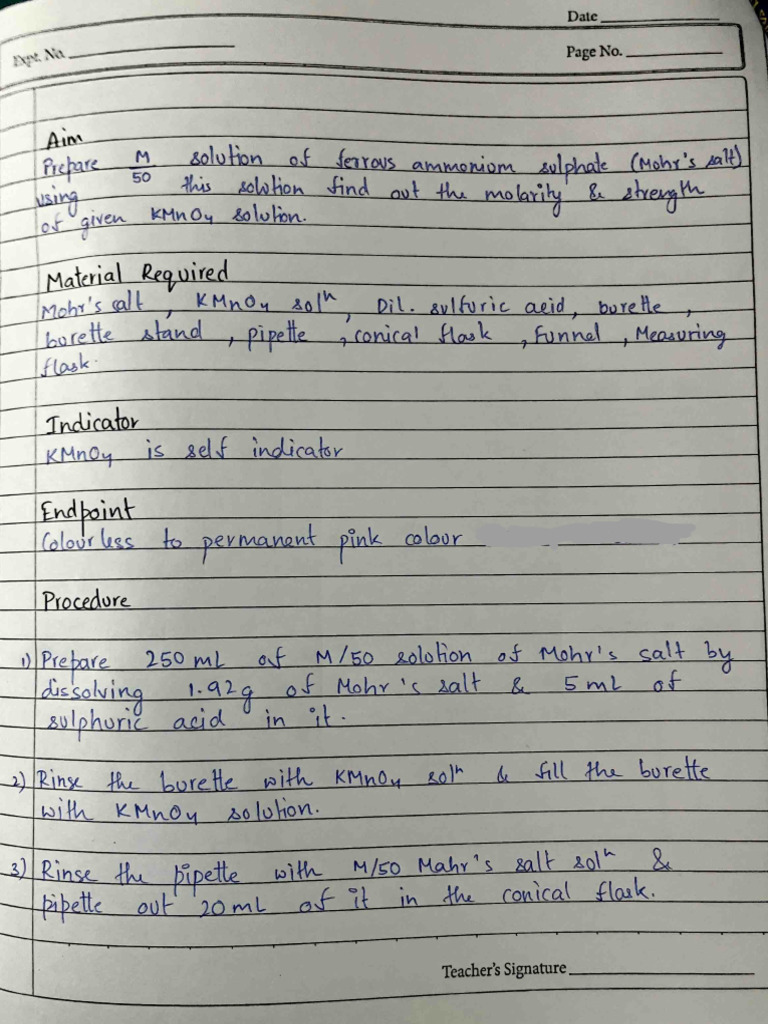 Date
Expt. No.
Page No.
Aim
Prepare M/50 solution of ferrous ammonium sulphate (Mohr's salt)
using this solution find out the molarity & strength
of given KMnO4 solution.
Material Required
Mohr's salt, KMnO4 solⁿ, Dil. sulfuric acid, burette,
burette stand, pipette, conical flask, funnel, Measuring
flask.
Indicator
KMnO4 is self indicator
Endpoint
Colourless to permanent pink colour
Procedure
1) Prepare 250 mL of M/50 solution of Mohr's salt by
dissolving 1.92g of Mohr's salt & 5 mL of
sulphuric acid in it.
2) Rinse the burette with KMnO4 solⁿ & fill the burette
with KMnO4 solution.
3) Rinse the pipette with M/50 Mahr's salt solⁿ &
pipette out 20 mL of it in the conical flask.
Teacher's Signature